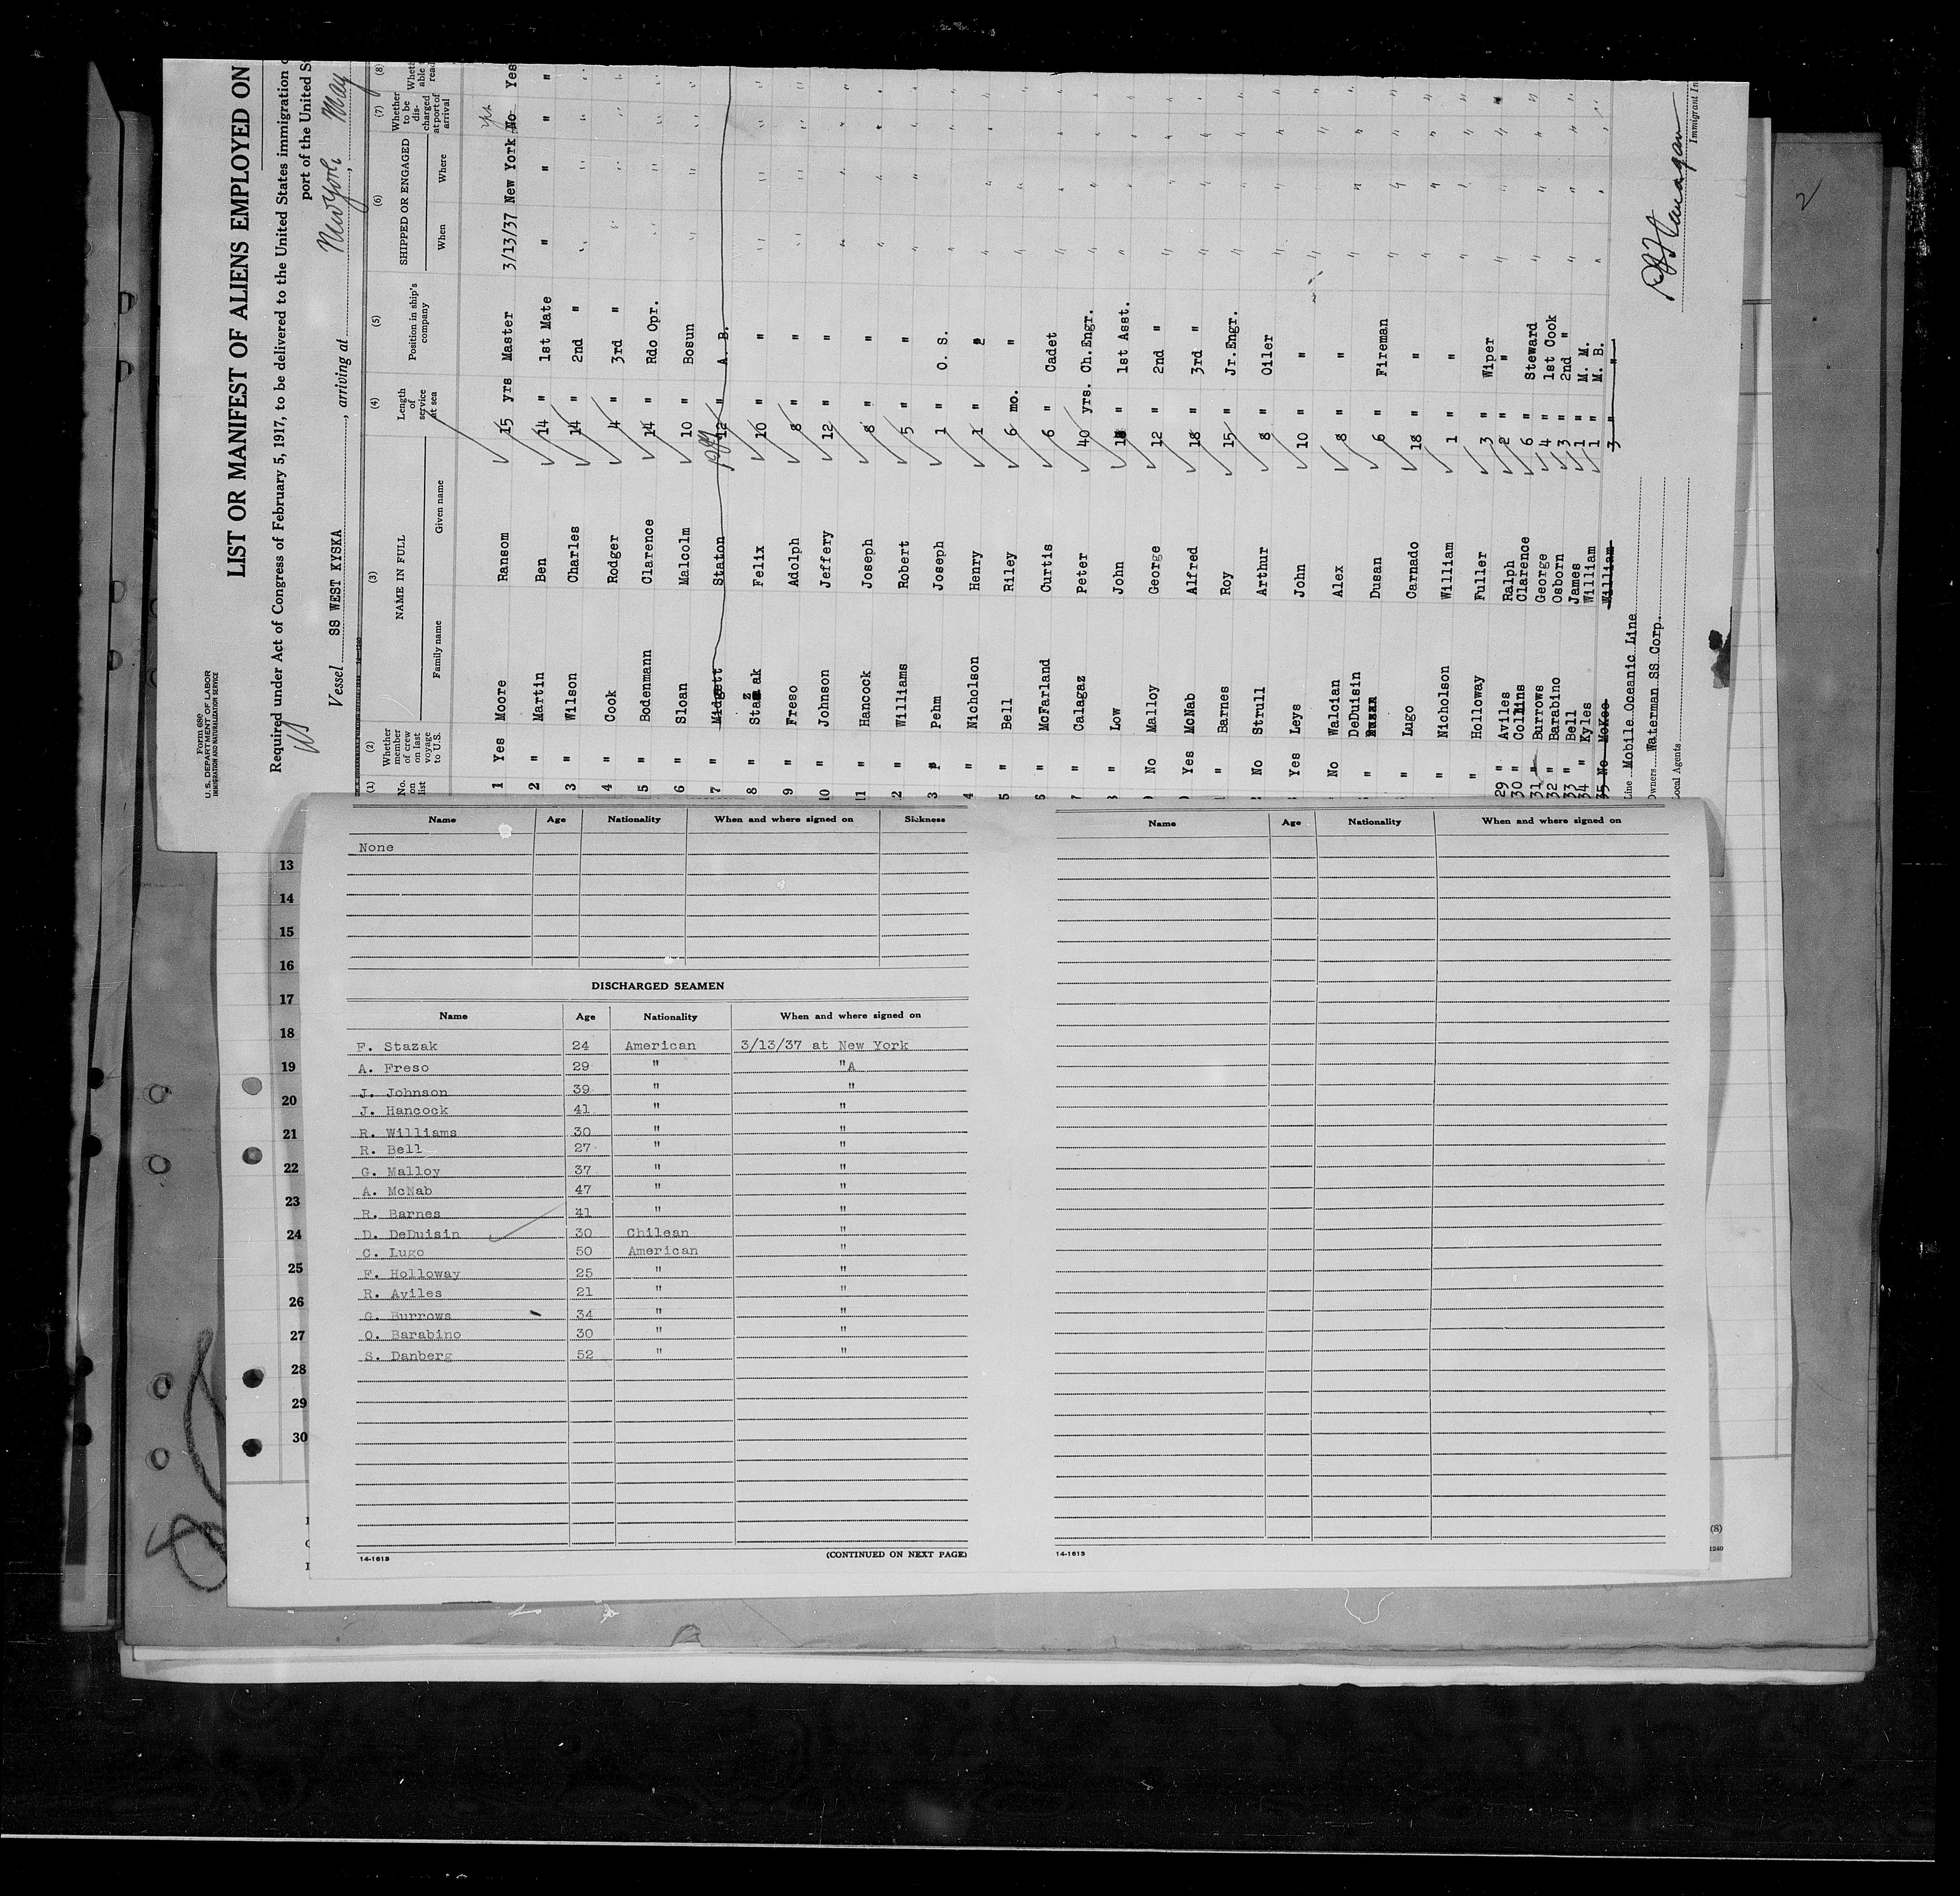 Form 680
U. S. DEPARTMENT OF LABOR
IMMIGRATION AND NATURALIZATION SERVICE
LIST OR MANIFEST OF ALIENS EMPLOYED ON
Required under Act of Congress of February 5, 1917, to be delivered to the United States immigration
port of the United
Vessel SS WEST KYSKA, arriving at New York, May
(1) (2) (3) (4) (5) (6) (7) (8)
No. on list Whether member of crew on last voyage to U.S. NAME IN FULL Family name Given name Length of service at sea Position in ship's company SHIPPED OR ENGAGED When Where Whether to be discharged at port of arrival
1 Yes Moore Ransom 15 yrs Master 3/13/37 New York No Yes
2 " Martin Ben 14 " 1st Mate " " " "
3 " Wilson Charles 14 " 2nd " " " " "
4 " Cook Rodger 4 " 3rd " " " " "
5 " Bodenmann Clarence 14 " Rdo Opr. " " " "
6 " Sloan Malcolm 10 " Bosun " " " "
7 " Midgett Staton 12 " A. B.
8 " Stazak Felix 10 " " " " " "
9 " Freso Adolph 8 " " " " " "
10 " Johnson Jeffery 12 " "
11 " Hancock Joseph 8 " " " " " "
2 " Williams Robert 5 " " " " " "
3 " Pehm Joseph 1 " O. S. " " "
4 " Nicholson Henry 1 " " " " "
5 " Bell Riley 6 mo. " " " " "
6 " McFarland Curtis 6 " Cadet " " " "
7 " Calagaz Peter 40 yrs. Ch.Engr. " " " "
" Low John " 1st Asst. " " " "
9 No Malloy George 12 " 2nd " " " " "
Yes McNab Alfred 18 " 3rd " " " " "
" Barnes Roy 15 " Jr.Engr. " " " "
No Strull Arthur 8 " Oiler " " " "
Yes Leys John 10 " " " " "
No Walcian Alex 8 " " " " " "
" DeDuisin Dusan 6 " Fireman " " " "
" Lugo Carnado 18 " " " " " "
" Nicholson William 1 " " " " " "
" Holloway Fuller 3 " Wiper " " "
29 " Aviles Ralph 2 " " " "
30 " Collins Clarence 6 " Steward
31 " Burrows George 4 " 1st Cook " " "
32 " Barabino Osborn 3 " 2nd "
33 " Bell James 1 " M. M. " " "
34 " Kyles William 1 " M. B. " "
35 No McKee William 3 " "
Line Mobile Oceanic Line
Owners Waterman SS Corp.
Local Agents
Immigrant In
2
Name Age Nationality When and where signed on Sickness
None
DISCHARGED SEAMEN
Name Age Nationality When and where signed on
F. Stazak 24 American 3/13/37 at New York
A. Freso 29 " "A
J. Johnson 39 " "
J. Hancock 41 " "
R. Williams 30 " "
R. Bell 27 " "
G. Malloy 37 " "
A. McNab 47 " "
R. Barnes 41 " "
D. DeDuisin 30 Chilean "
C. Lugo 50 American "
F. Holloway 25 " "
R. Aviles 21 " "
G. Burrows 34 " "
O. Barabino 30 " "
S. Danberg 52 " "
14-1613 (CONTINUED ON NEXT PAGE)
Name Age Nationality When and where signed on
14-1613
13
14
15
16
17
18
19
20
21
22
23
24
25
26
27
28
29
30
(8)
1240